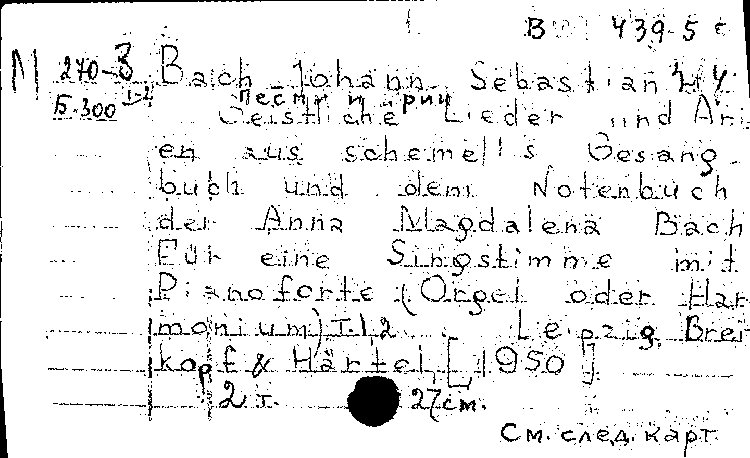 В 439-5
М 270-3 Bach Johann Sebastian
I-2 песни и арии
Б.300 Geistliche Lieder und Ari
en aus schemell's Gesang-
buch und dem Notenbuch
der Anna Magdalena Bach
Für eine Singstimme mit
Pianoforte (Orgel oder Har
monium) T.1,2 Leipzig, Brei
kopf & Härtel, [1950]
2 т. 27см.
См. след. карт.